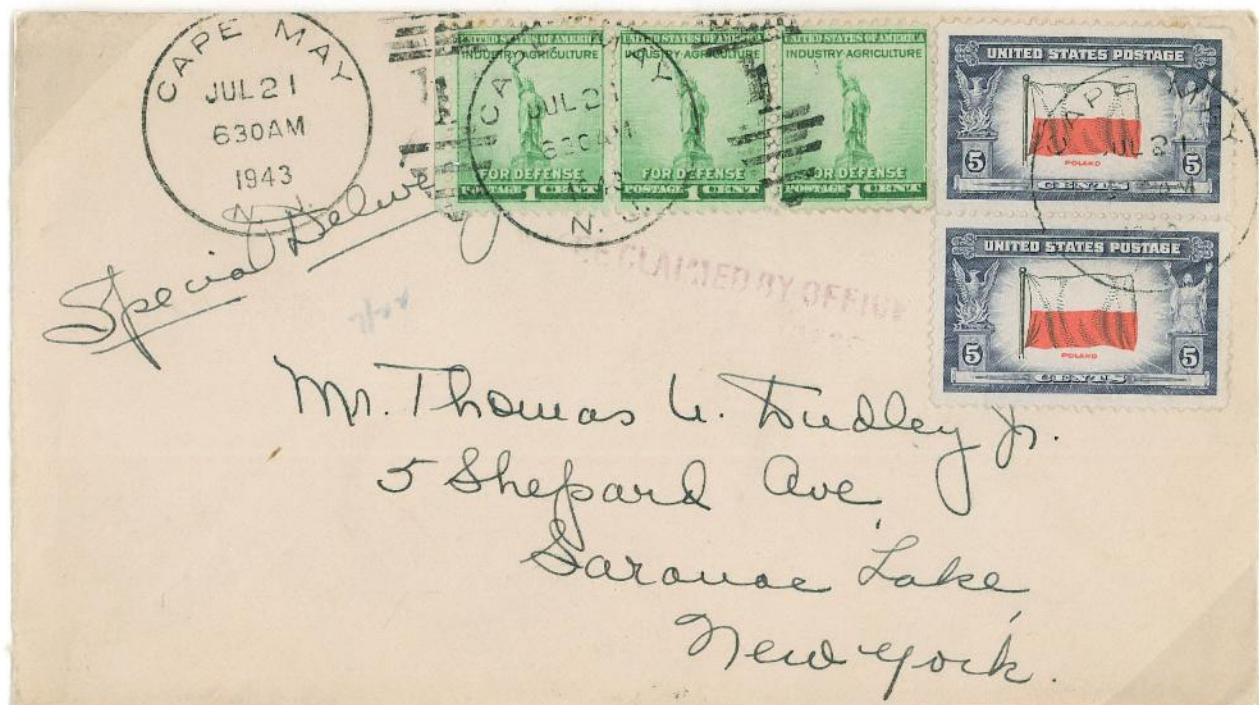 CAPE MAY
JUL 21
630AM
1943
N. J.
UNITED STATES OF AMERICA
INDUSTRY·AGRICULTURE
FOR DEFENSE
POSTAGE 1 CENT
UNITED STATES OF AMERICA
INDUSTRY·AGRICULTURE
FOR DEFENSE
POSTAGE 1 CENT
UNITED STATES OF AMERICA
INDUSTRY·AGRICULTURE
FOR DEFENSE
POSTAGE 1 CENT
CAPE MAY
JUL 21
630AM
1943
N. J.
UNITED STATES POSTAGE
POLAND
5 5
CENTS
CAPE MAY
JUL 21
UNITED STATES POSTAGE
POLAND
5 5
CENTS
Special Delivery
CLAIMED BY OFFICE
Mr. Thomas U. Dudley Jr.
5 Shepard Ave,
Saranac Lake,
New York.